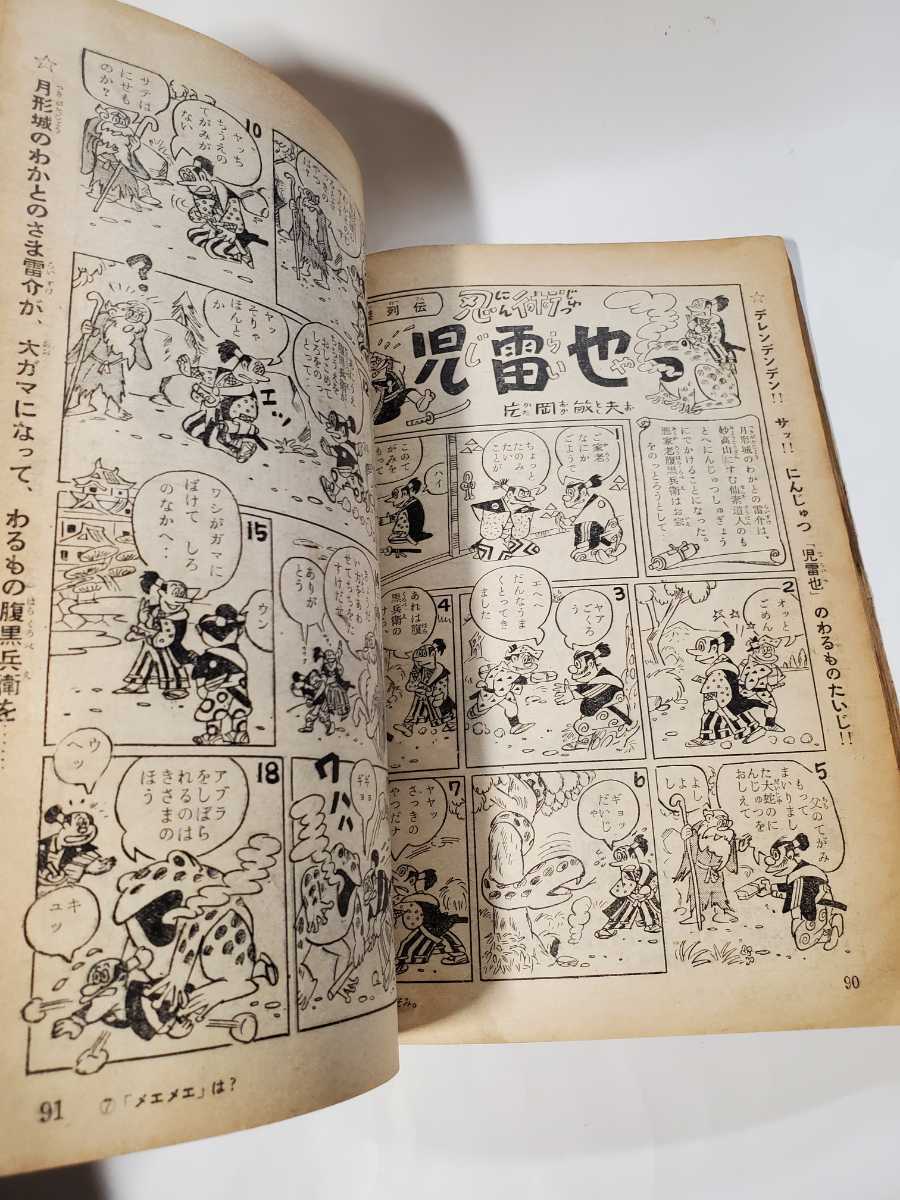 ☆デレンデンデン!! サッ!! にんじゅつ「児雷也」のわるものたいじ!!
列伝
忍術
にんじゅつ
児雷也
じらいや
片岡敏夫
かたおかとしお
月形城のわかとの雷介は、
妙高山にすむ仙茶道人のも
とへにんじゅつしゅぎょう
にでかけることになった。
悪家老腹黒兵衛はお家
をのっとろうとして…
1
ご家老
なにか
ごようで
ちょっと
たのみ
たい
ことが
このて
がみを
もって
ハイ
2
オッと
ごめん
3
ヤアご
ろう
エヘヘ
だんなうま
くとってき
ました
4
あれは腹
黒兵衛の
5
父のてがみ
もって
まいりまし
た大蛇のに
んじゅつを
おしえて
よし
よし
6
ギョッ
だいじ
や
7
ヤヤッ
さっきの
やつだナ
90
10
ヤッち
ちうえの
てがみが
ない
サテは
にせも
のか?
ヤッ
そりゃ
ほんと
か
エッ
しろをの
とって
15
ワシがガマに
ばけて しろ
のなかへ‥
ウン
ありが
とう
ワハハ
ギョ
ギョ
18
アブラ
をしぼら
れるのは
きさまの
ほう
ウヘッ
キュッ
☆月形城のわかとのさま雷介が、大ガマになって、わるもの腹黒兵衛を……
91
⑦「メエメエ」は?